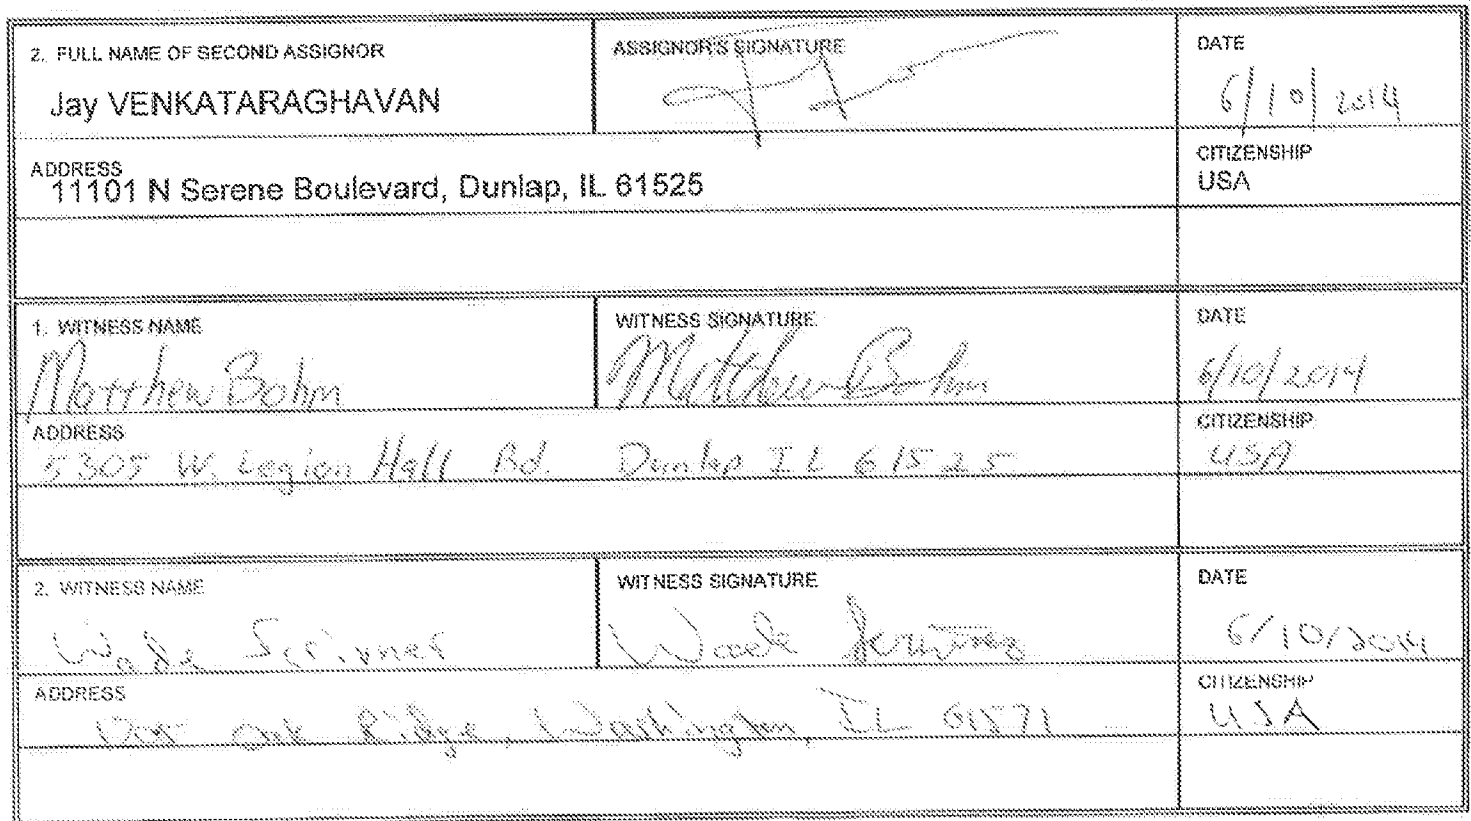 2. FULL NAME OF SECOND ASSIGNOR
Jay VENKATARAGHAVAN
ASSIGNOR'S SIGNATURE
DATE
6/10/2014
ADDRESS
11101 N Serene Boulevard, Dunlap, IL 61525
CITIZENSHIP
USA
1. WITNESS NAME
Matthew Bohm
WITNESS SIGNATURE
Matthew Bohm
DATE
6/10/2014
ADDRESS
5305 W. Legion Hall Rd. Dunlap IL 61525
CITIZENSHIP
USA
2. WITNESS NAME
Wade Scrivner
WITNESS SIGNATURE
Wade Scrivner
DATE
6/10/2014
ADDRESS
Oak Ridge, Washington, IL 61571
CITIZENSHIP
USA